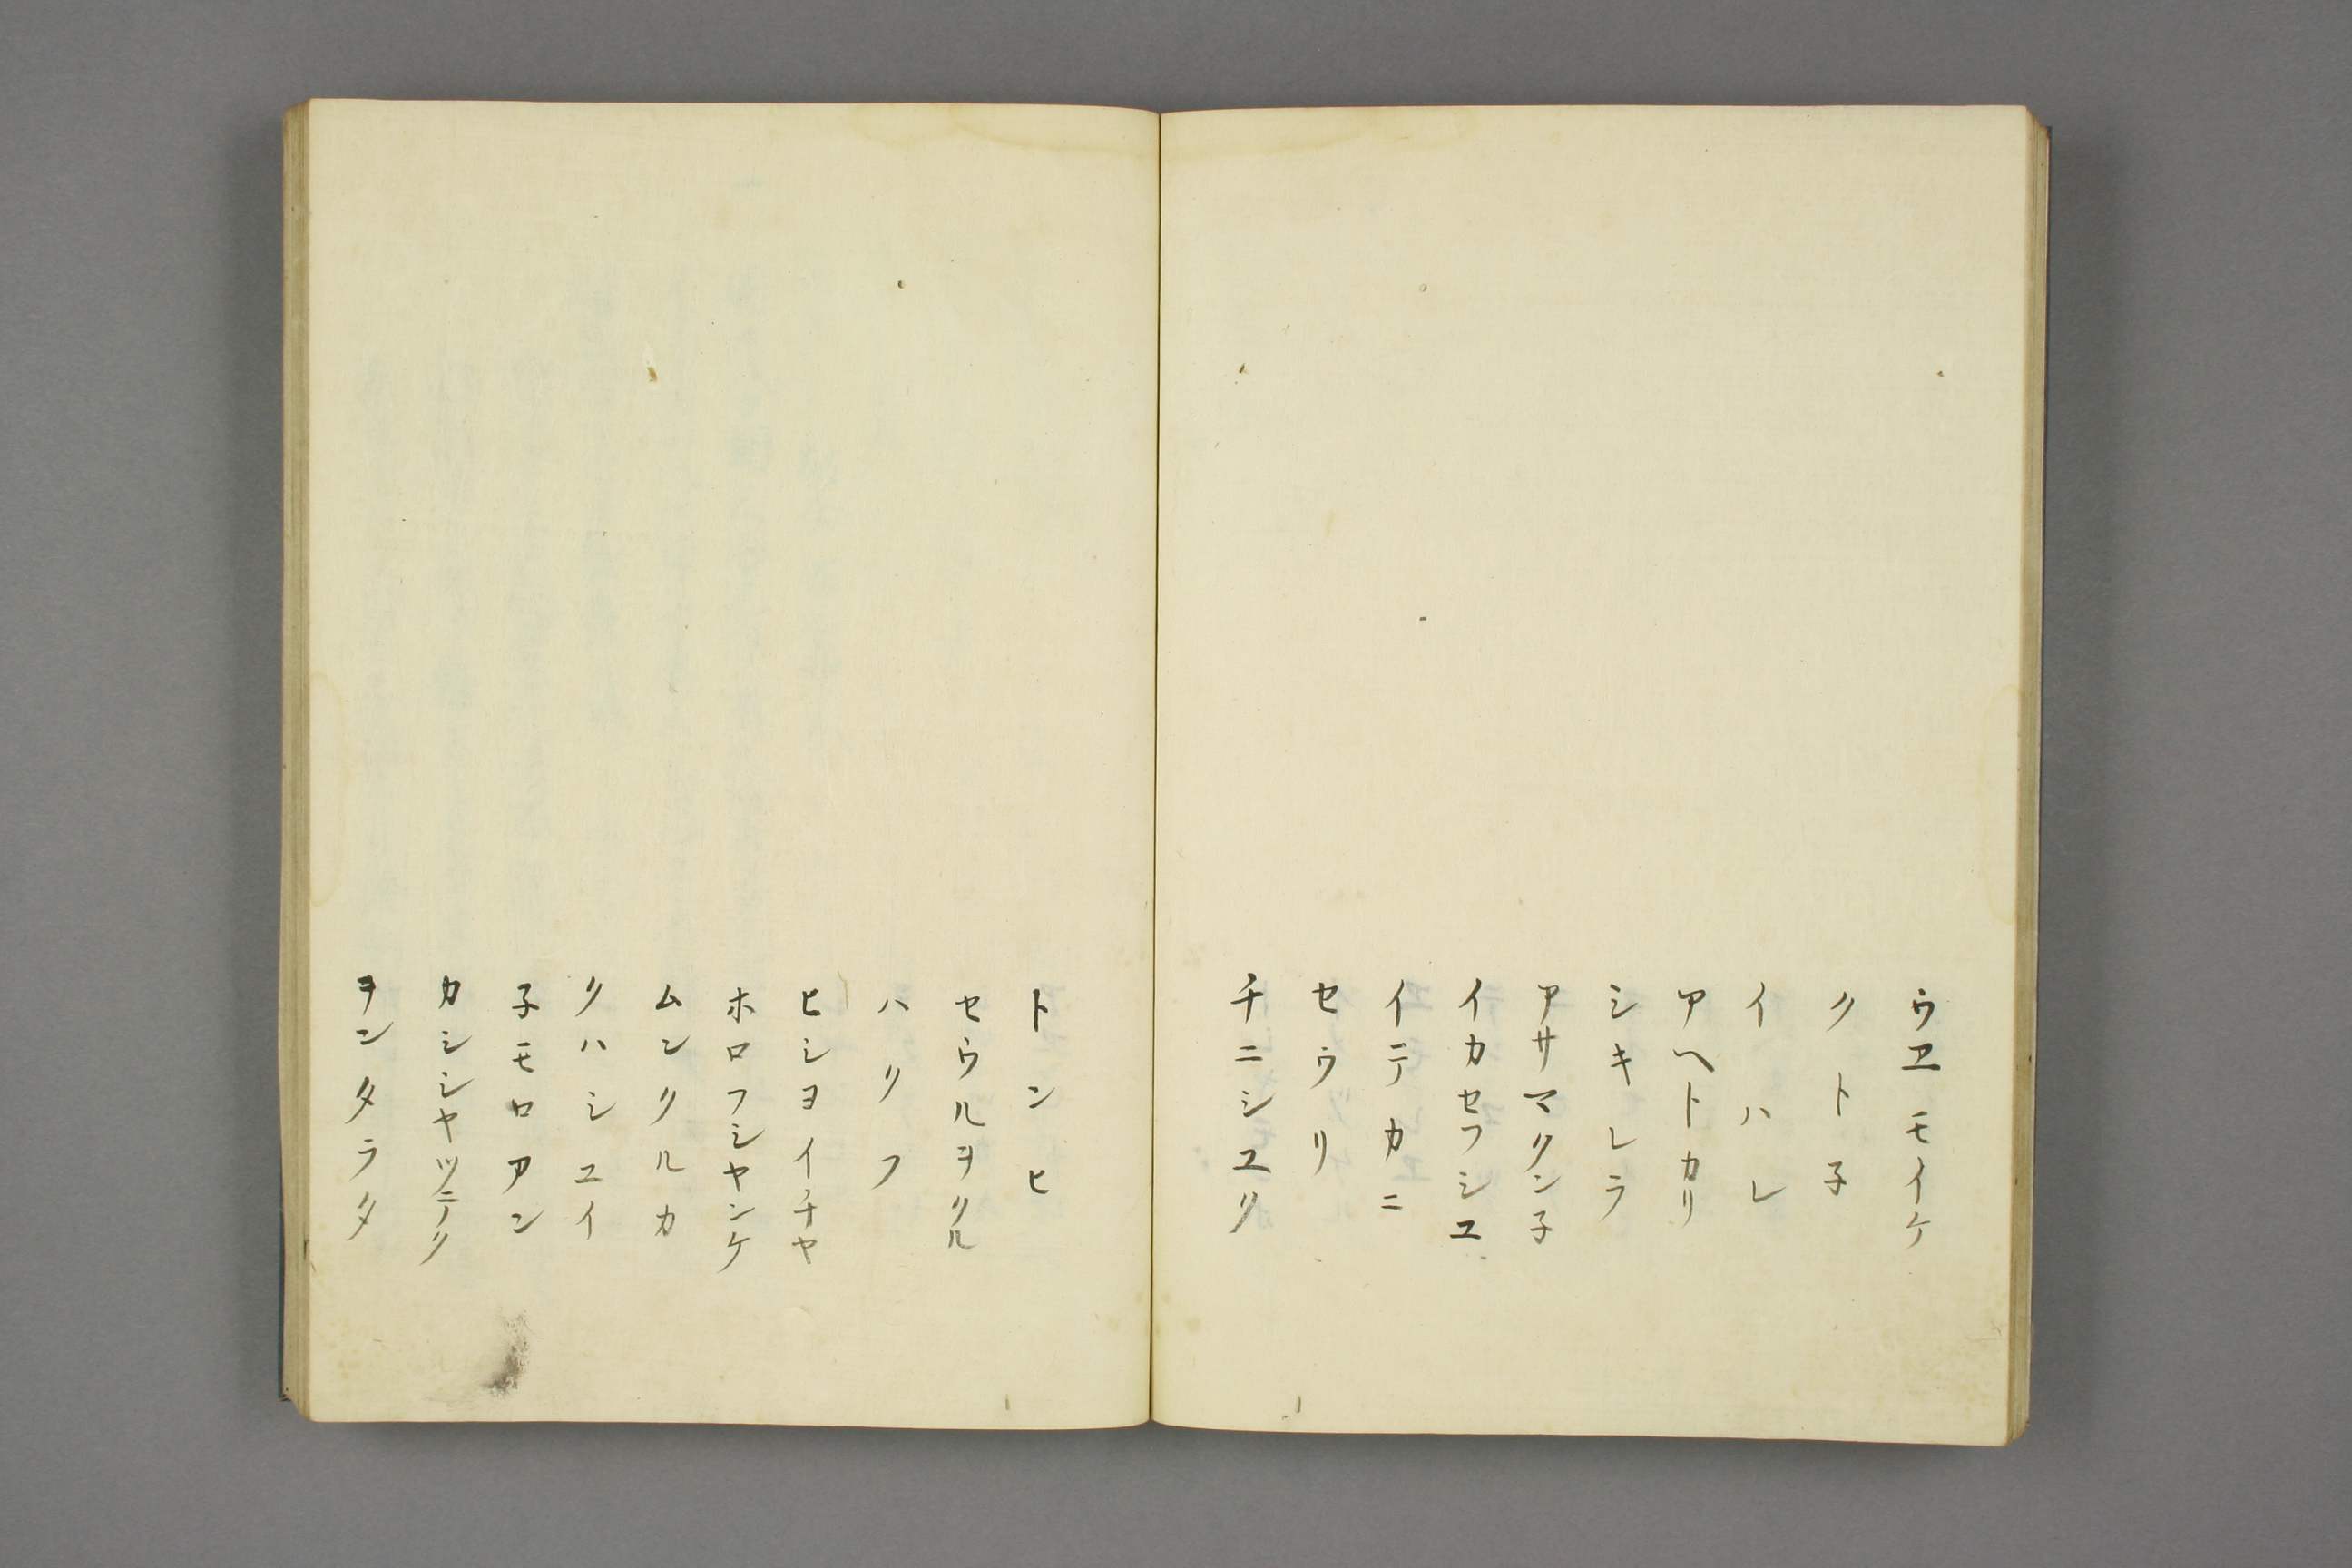 ウエモイケ
クト子
イハレ
アヘトカリ
シキレラ
アサマクン子
イカセフシユ
イテカニ
セウリ
チニシユク
トンヒ
セウルヲクル
ハクフ
ヒシヨイチヤ
ホロフシヤンケ
ムンクルカ
クハシユイ
子モロアン
カシシヤツテク
ヲンタラタ